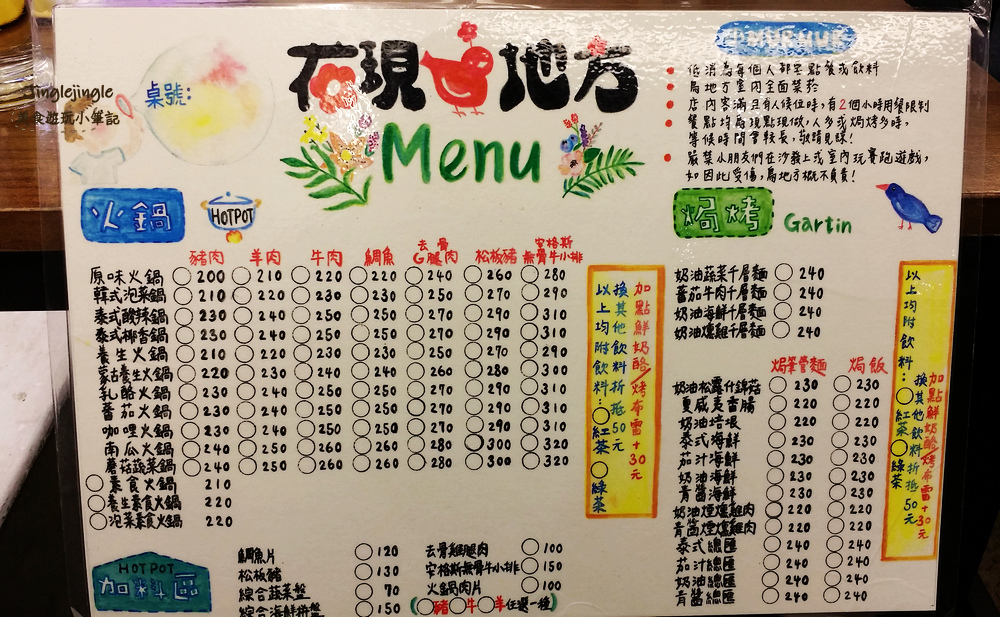 Jinglejingle
美食遊玩小筆記
桌號:
在現地方
Menu
小MURMUR
低消為每個人都宅點餐或飲料
馬地方室內全面禁菸
店內客滿且有人候位時,有2個小時用餐限制
餐點均為現點現做,人多或焗烤多時,
等候時間會較長,敬請見諒!
嚴禁小朋友們在沙發上或室內玩賽跑遊戲,
如因此受傷,馬地方概不負責!
火鍋
HOTPOT
豬肉 羊肉 牛肉 鯛魚 去骨G腿肉 松板豬 安格斯無骨牛小排
原味火鍋 200 210 220 220 240 260 280
韓式泡菜鍋 210 220 230 230 250 270 290
泰式酸辣鍋 230 240 250 250 270 290 310
泰式椰香鍋 230 240 250 250 270 290 310
養生火鍋 210 220 230 230 250 270 290
蒙古養生火鍋 220 230 240 240 260 280 300
乳酪火鍋 230 240 250 250 270 290 310
蕃茄火鍋 230 240 250 250 270 290 310
咖哩火鍋 230 240 250 250 270 290 310
南瓜火鍋 240 250 260 260 280 300 320
蘑菇蔬菜鍋 240 250 260 260 280 300 320
素食火鍋 210
養生素食火鍋 220
泡菜素食火鍋 220
以上均附飲料:紅茶 綠茶
換其他飲料折抵50元
加點鮮奶酪/烤布雷+30元
焗烤
Gartin
奶油蔬菜千層麵 240
蕃茄牛肉千層麵 240
奶油海鮮千層麵 240
奶油燻雞千層麵 240
焗筆管麵 焗飯
奶油松露什錦菇 230 230
夏威夷香腸 220 220
奶油培根 220 220
泰式海鮮 230 230
茄汁海鮮 230 230
奶油海鮮 230 230
青醬海鮮 230 230
奶油煙燻雞肉 220 220
青醬煙燻雞肉 220 220
泰式總匯 240 240
茄汁總匯 240 240
奶油總匯 240 240
青醬總匯 240 240
以上均附飲料:紅茶 綠茶
換其他飲料折抵50元
加點鮮奶酪/烤布雷+30元
HOTPOT
加料區
鯛魚片 120
松板豬 130
綜合蔬菜盤 70
綜合海鮮拼盤 150
去骨雞腿肉 100
安格斯無骨牛小排 150
火鍋肉片 100
(豬 牛 羊任選一種)